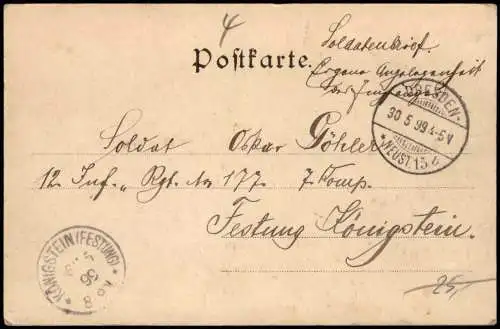 4
Postkarte.
Soldatenbrief.
Eigene Angelegenheit
des Empfängers
DRESDEN-
30 5 99 4-5V
* NEUST. 15 c
Soldat Oskar Göhler
12 Inf. Rgt. No 177. 7 Komp.
Festung Königstein.
KÖNIGSTEIN (FESTUNG)
25,-